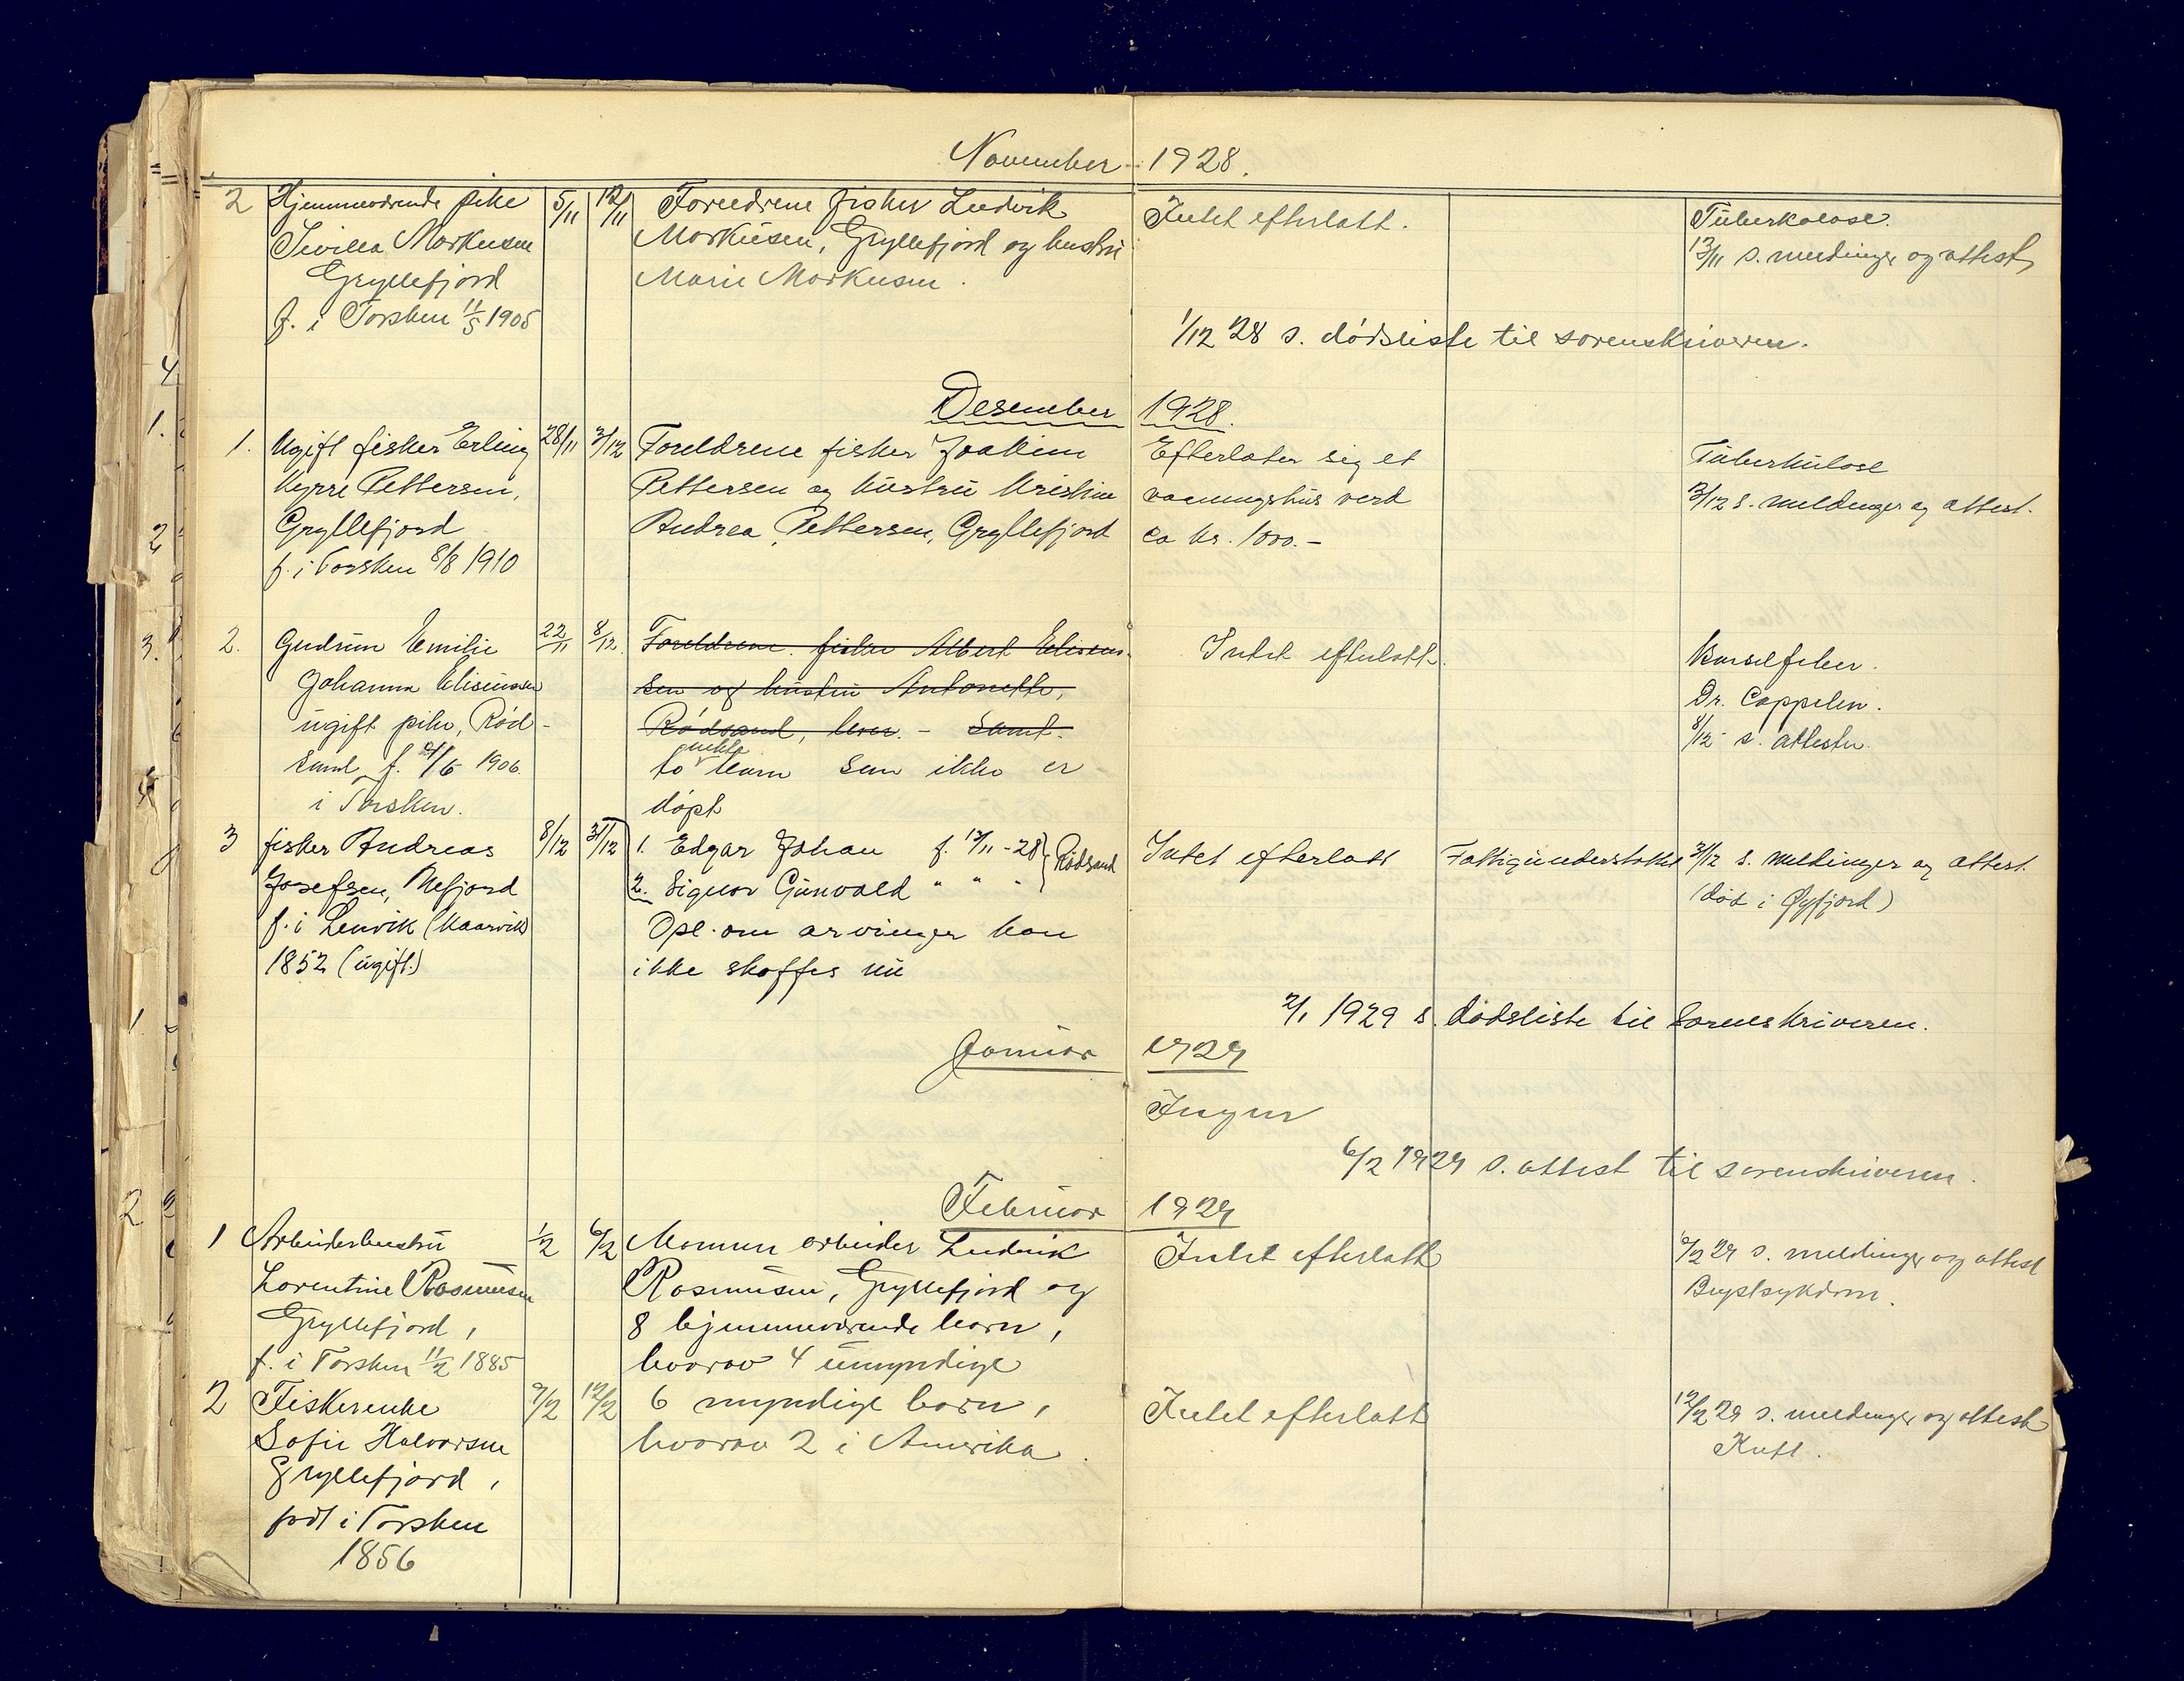 November 1928.
2 Hjemmeværende pike 5/11 12/11 Foreldrene fisker Ludvik Intet efterlatt. Tuberkulose.
Sivilla Markusen Markusen, Gryllefjord og hustru 13/11 s. meldinger og attest
Gryllefjord Marie Markusen.
f. i Torsken 11/5 1905
1/12 28 s. dødsliste til sorenskriveren.
Desember 1928.
1. Ugift fisker Erling 28/11 3/12 Foreldrene fisker Joakim Efterlater sig et Tuberkulose
Kyrre Pettersen, Pettersen og hustru Kristine vaaningshus verd 3/12 s. meldinger og attest.
Gryllefjord Andrea Pettersen, Gryllefjord ca kr. 1000.-
f. i Torsken 8/8 1910
2. Gudrun Emilie 22/11 8/12. Foreldrene. fisker Albert Eliseus- Intet efterlatt. Barselfeber.
Johanna Eliseussen sen og hustru Antonette, Dr. Coppelen.
ugift pike, Rød- Rødsand, lever. - Samt. 8/12 - s. attester.
sand f. /6 1906. to uekte barn som ikke er
i Torsken. døpt
3 fisker Andreas 8/12 31/12 1. Edgar Johan f. 17/11 - 28 Rødsand Intet efterlatt Fattigunderstøttet 31/12 s. meldinger og attest.
Josefsen, Mefjord 2. Signor Gunvald " " " (død i Øyfjord)
f. i Lenvik (Kaarvik) Opl. om arvinger kan
1852 (ugift.) ikke skaffes nu
2/1 1929 s. dødsliste til Sorenskriveren.
Januar 1929
Ingen
6/2 1929 s. attest til sorenskriveren.
Februar 1929
1 Arbeiderhustru 1/2 6/2 Mannen arbeider Ludvik Intet efterlatt 6/2 29 s. meldinger og attest
Lorentine Rasmusen Rasmusen, Gryllefjord og Brystsykdom.
Gryllefjord, 8 hjemmeværende barn,
f. i Torsken 11/2 1885 hvorav 4 umyndige
2 Fiskerenke 9/2 12/2 6 myndige barn, Intet efterlatt 12/2 29 s. meldinger og attest
Sofie Halvorsen hvorav 2 i Amerika. Kreft.
Gryllefjord,
født i Torsken
1856
4
1.
2
3.
4
1
2